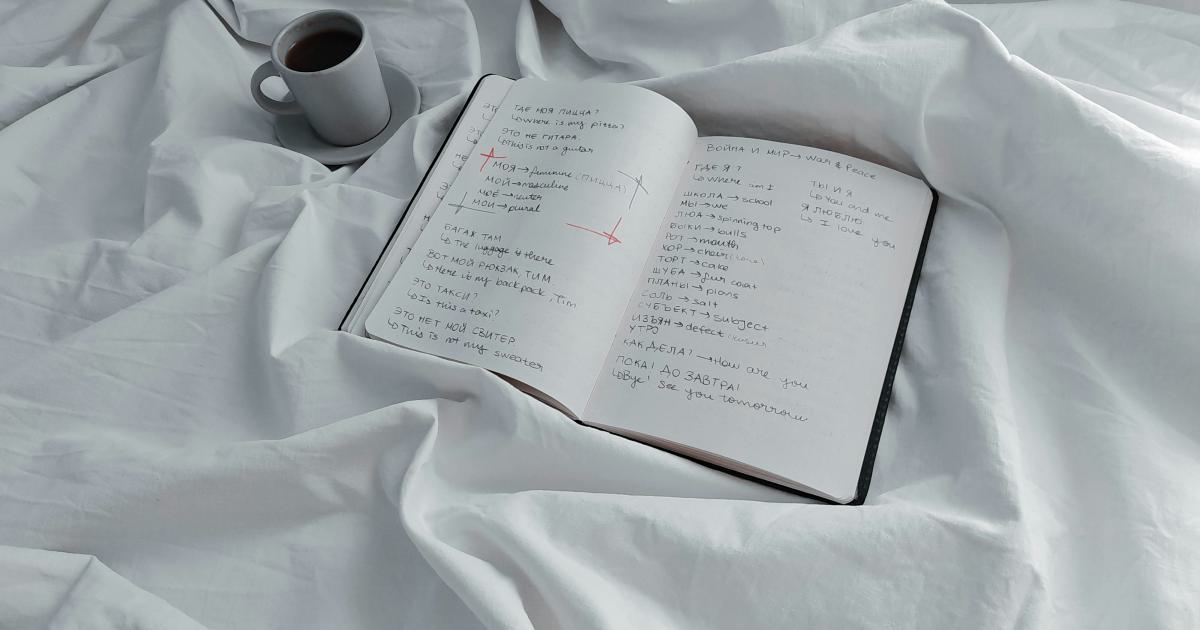 ГДЕ МОЯ ПИЦЦА?
↳ Where is my pizza?
ЭТО НЕ ГИТАРА
↳ This is not a guitar
МОЯ → feminine (ПИЦЦА)
МОЙ → masculine
МОЁ → neuter
МОИ → plural
БАГАЖ ТАМ
↳ The luggage is there
ВОТ МОЙ РЮКЗАК, ТИМ.
↳ Here is my backpack, Tim
ЭТО ТАКСИ?
↳ Is this a taxi?
ЭТО НЕТ МОЙ СВИТЕР
↳ This is not my sweater
ВОЙНА И МИР → War & Peace
ГДЕ Я?
↳ Where am I
ШКОЛА → school
МЫ → we
ЮЛА → spinning top
БЫКИ → bulls
РОТ → mouth
ХОР → choir
ТОРТ → cake
ШУБА → fur coat
ПЛАНЫ → plans
СОЛЬ → salt
СУБЪЕКТ → subject
ИЗЪЯН → defect
УТРО
КАК ДЕЛА? → How are you
ПОКА! ДО ЗАВТРА!
↳ Bye! See you tomorrow
ТЫ И Я
↳ You and me
Я ЛЮБЛЮ
↳ I love you